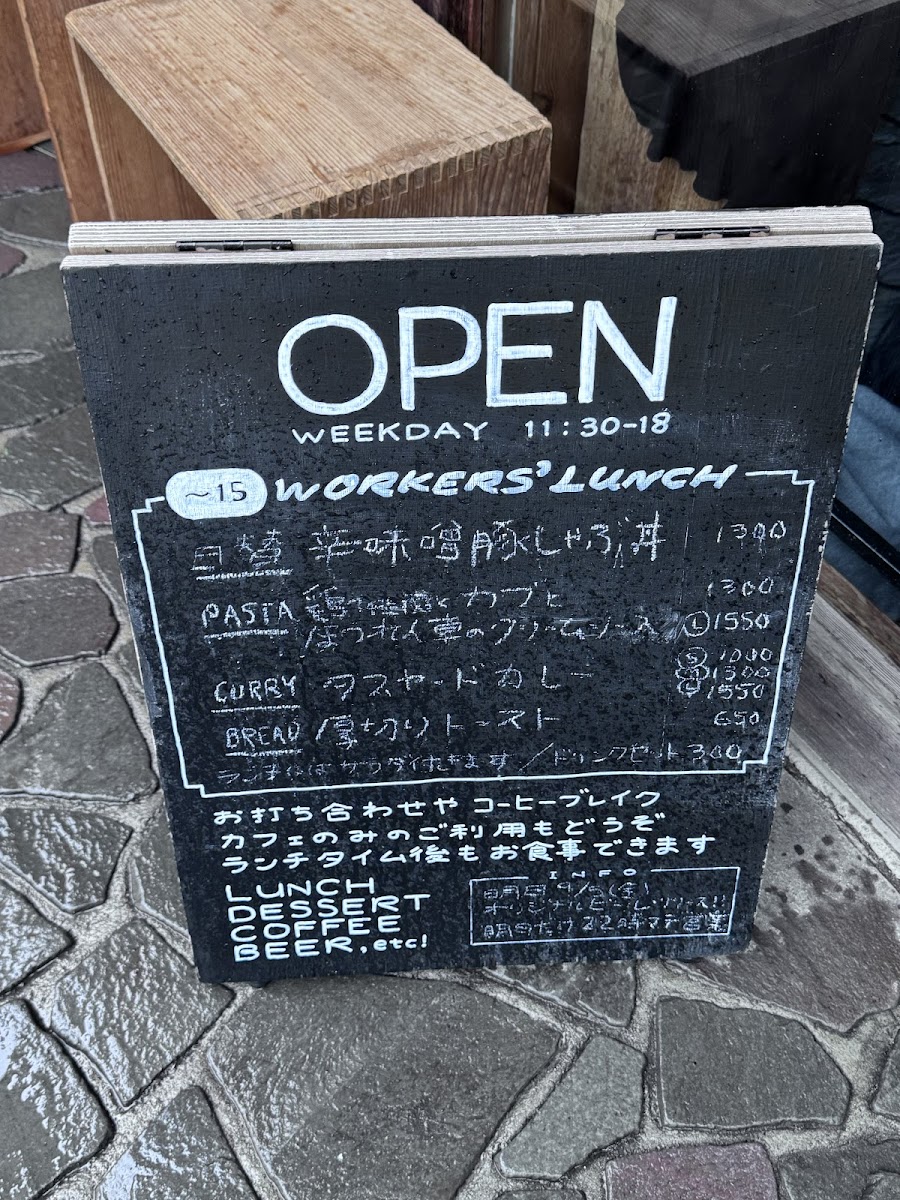 OPEN
WEEKDAY 11:30-18
~15 WORKERS' LUNCH
日替 辛味噌豚しゃぶ丼 1300
PASTA 鶏 とカブと 1300
ほうれん草のクリームソース Ⓛ1550
Ⓢ 1000
CURRY マスタードカレー 1300
1550
BREAD 厚切りトースト 650
ランチにはサラダ付きます/ドリンクセット300
お打ち合わせや コーヒーブレイク
カフェのみのご利用もどうぞ
ランチタイム後もお食事できます
LUNCH
DESSERT
COFFEE
BEER, etc!
INFO
明日9/5(金)
オリジナルビールリリース!
明日だけ22時マデ営業